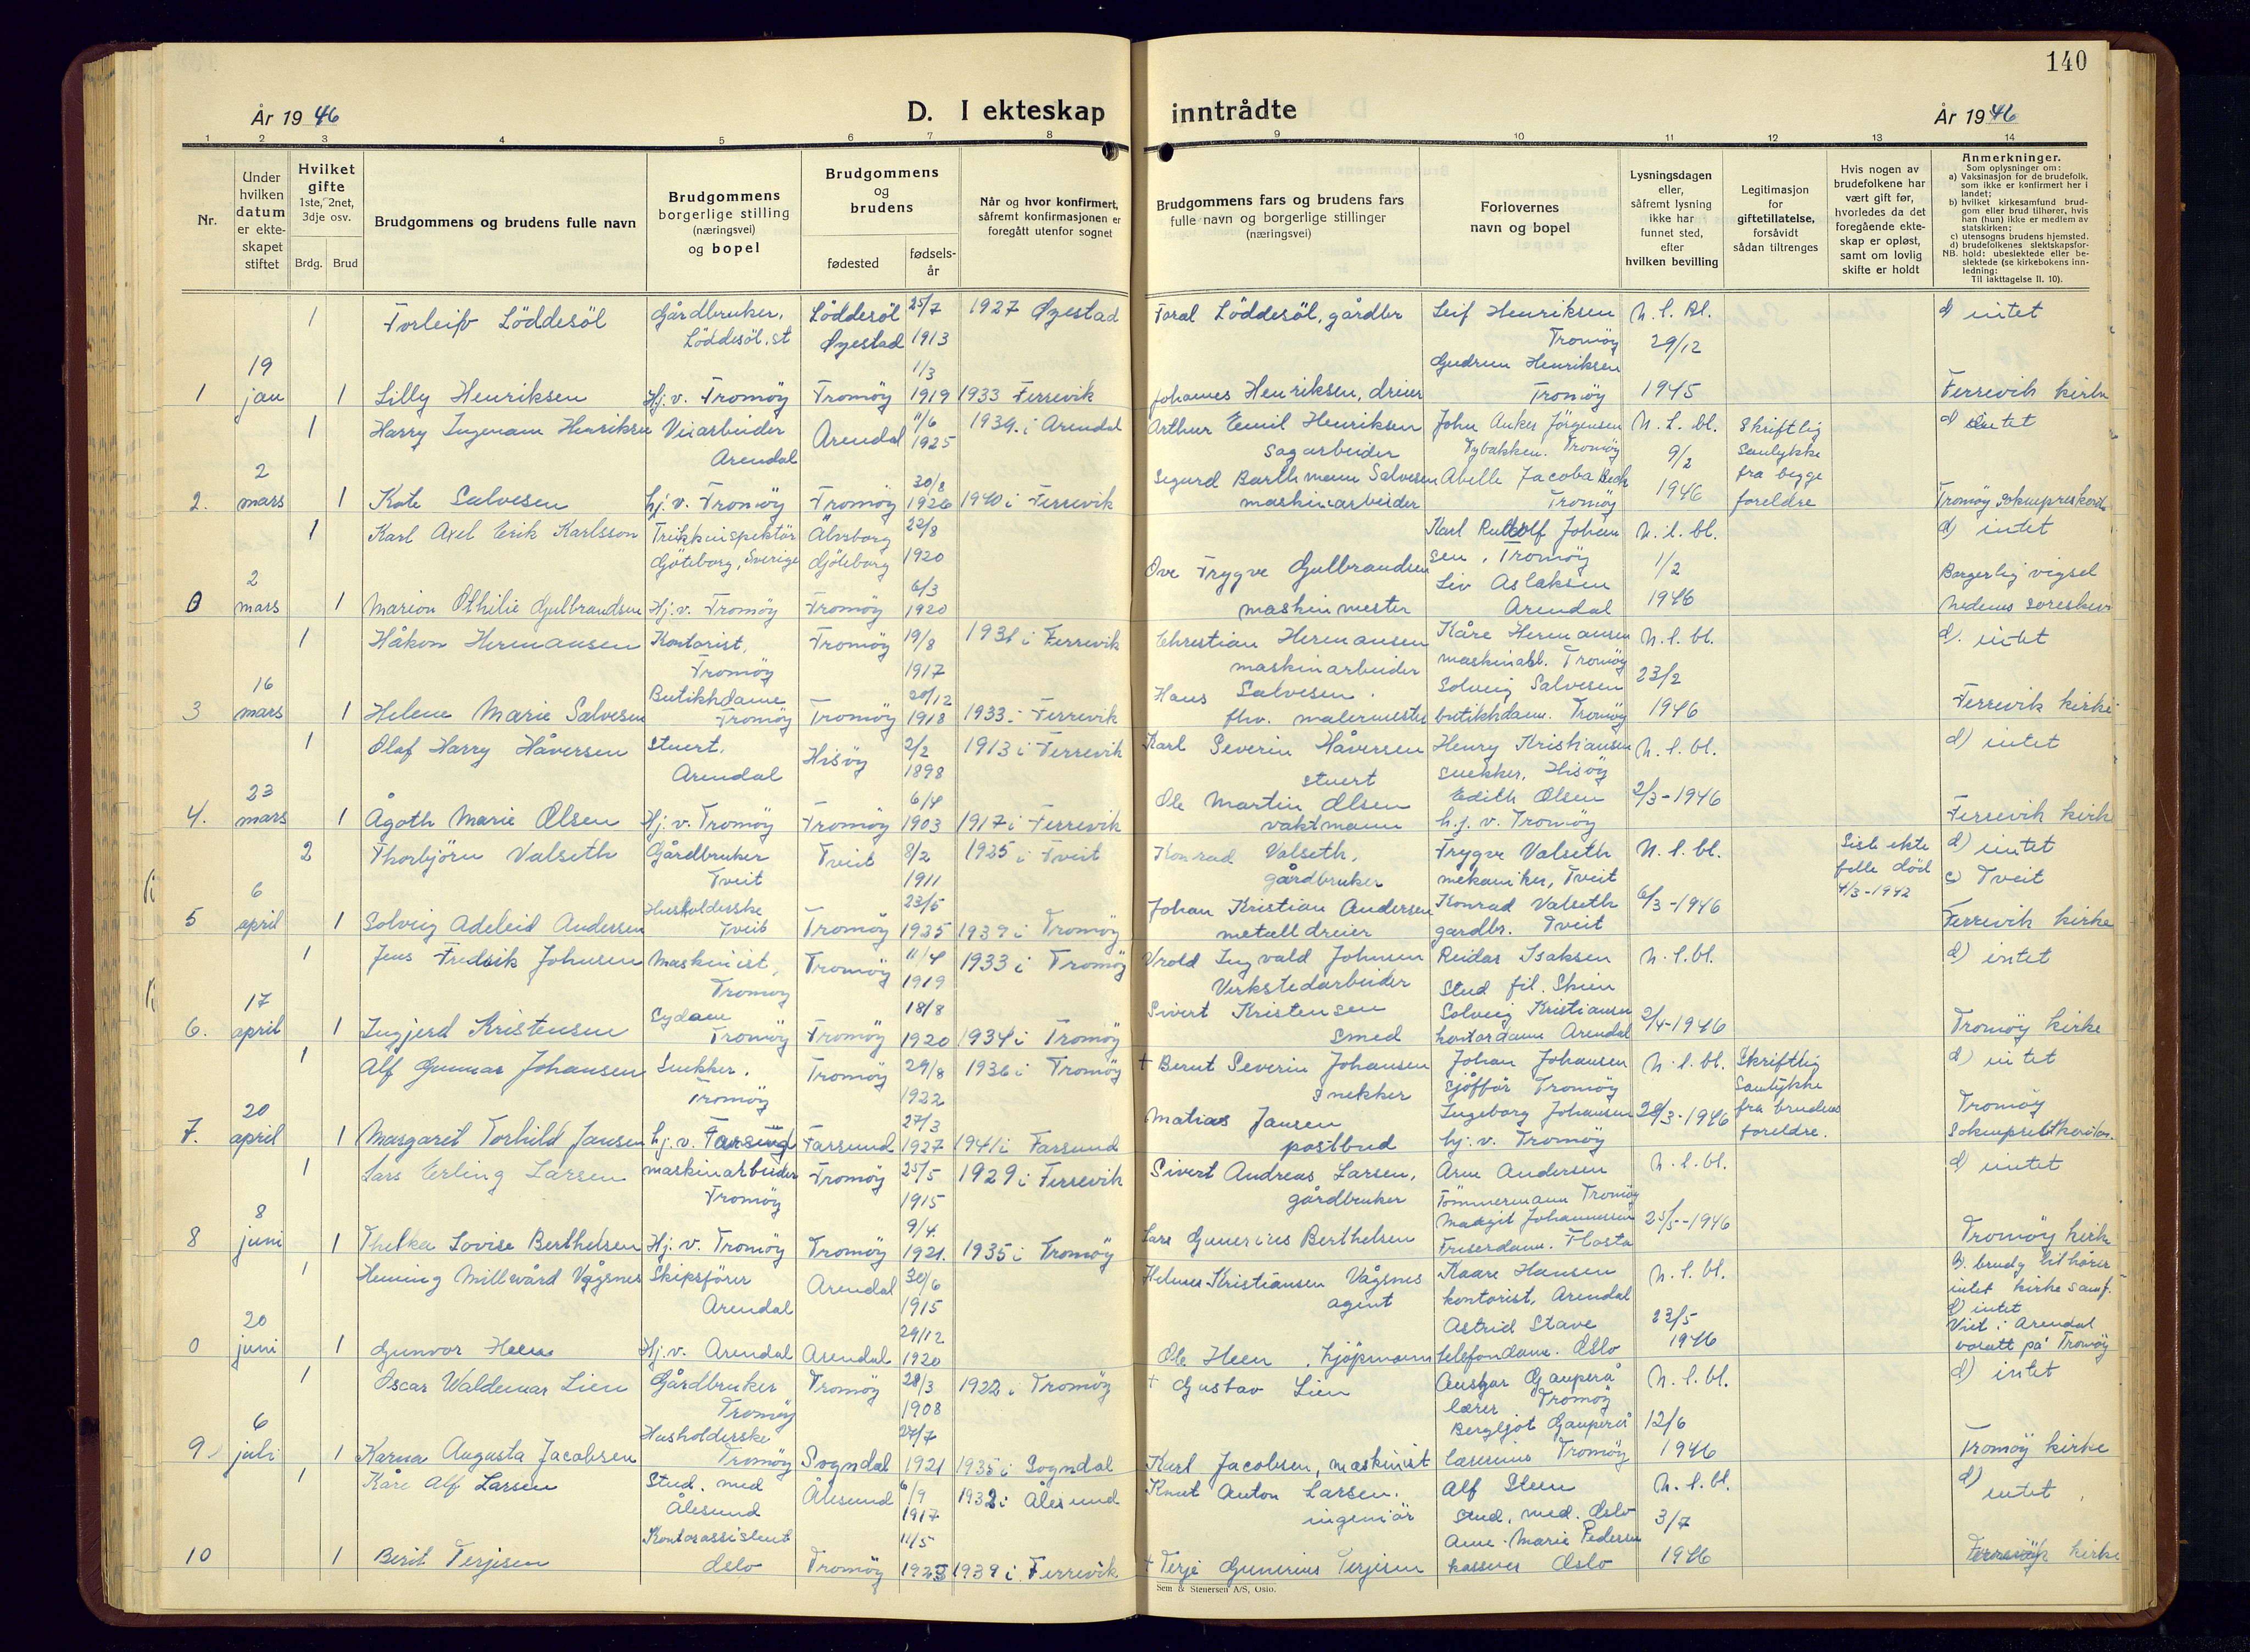 140
År 1946
D. I ekteskap inntrådte
År 1946
1 2 3 4 5 6 7 8 9 10 11 12 13 14
Nr.
Under hvilken datum er ekteskapet stiftet
Hvilket gifte 1ste, 2net, 3dje osv.
Brdg. Brud
Brudgommens og brudens fulle navn
Brudgommens borgerlige stilling (næringsvei) og bopel
Brudgommens og brudens
fødested
fødselsår
Når og hvor konfirmert, såfremt konfirmasjonen er foregått utenfor sognet
Brudgommens fars og brudens fars fulle navn og borgerlige stillinger (næringsvei)
Forlovernes navn og bopel
Lysningsdagen eller, såfremt lysning ikke har funnet sted, efter hvilken bevilling
Legitimasjon for giftetillatelse, forsåvidt sådan tiltrenges
Hvis nogen av brudefolkene har vært gift før, hvorledes da det foregående ekteskap er opløst, samt om lovlig skifte er holdt
Anmerkninger.
Som oplysninger om:
a) Vaksinasjon for de brudefolk, som ikke er konfirmert her i landet;
b) hvilket kirkesamfund brudgom eller brud tilhører, hvis han (hun) ikke er medlem av statskirken;
c) utensogns brudens hjemsted.
d) brudefolkenes slektskapsforhold: ubeslektede eller beslektede (se kirkebokens innledning:
NB.
Til iakttagelse II. 10).
1 Torleif Löddesöl Gårdbruker, Löddesöl. st Löddesöl Øyestad 25/7 1913 1927 Øyestad Toral Löddesöl, gårdbr Leif Henriksen Tromöy N. l. Bl. 29/12 d) intet
1 19 jan 1 Lilly Henriksen Hj. v. Tromöy Tromöy 1/3 1919 1933 Færvik Johannes Henriksen, dreier Gudrun Henriksen Tromöy 1945 Færvik kirke
1 Harry Ingemann Henriksen Veiarbeider Arendal Arendal 11/6 1925 1939 i Arendal Arthur Emil Henriksen Sagarbeider John Anker Jörgensen Tybakken. Tromöy N. l. bl. 9/2 Skriftlig Samtykke d) intet
2. 2 mars 1 Kate Salvesen hj. v. Tromöy Tromöy 30/8 1926 1940 i Færvik Sigurd Barthmann Salvesen maskinarbeider Abelle Jacoba Bech Tromöy 1946 fra begge foreldre Tromöy
1 Karl Axel Erik Karlsson Trikkinspektör Göteborg, Sverige Älvsborg Göteborg 22/8 1920 Karl Rudolf Johansen, Tromöy N. l. bl. 1/2 d) intet
0 2 mars 1 Marion Othilie Gulbrandsen Hj. v. Tromöy Tromöy 6/3 1920 Ove Trygve Gulbrandsen maskinmester Liv Aslaksen Arendal 1946 Borgerlig vigsel Nedenes
1 Håkon Hermansen Kontorist, Tromöy Tromöy 19/8 1917 i Færvik Christian Hermansen maskinarbeider Kåre Hermansen maskinarb. Tromöy N. l. bl. 23/2 d. intet
3 16 mars 1 Helene Marie Salvesen Butikkdame Tromöy Tromöy 20/12 1918 1933 i Færvik Hans Salvesen. fhv. malermester Solveig Salvesen butikkdam. Tromöy 1946 Færvik kirke
1 Olaf Harry Håversen Stuert. Arendal Hisöy 2/2 1898 1913 i Færvik Karl Severin Håversen stuert Henry Kristiansen Snekker, Hisöy N. l. bl. d) intet
4. 23 mars 1 Ågoth Marie Olsen Hj. v. Tromöy Tromöy 6/4 1903 1917 i Færvik Ole Martin Olsen vaktmann Edith Olsen h.j. v. Tromöy 2/3-1946 Færvik kirke
2 Thorbjörn Valseth Gårdbruker Tveit Tveit 8/2 1911 1925 i Tveit Konrad Valseth, gårdbruker Trygve Valseth mekaniker, Tveit N. l. bl. Siste ektefelle död 4/3-1942 d) intet c) Tveit
5 6 april 1 Solveig Adeleid Andersen Husholderske Tveit Tromöy 23/5 1925 1939 i Tromöy Johan Kristian Andersen metalldreier Konrad Valseth gardbr. Tveit 6/3-1946 Færvik kirke
1 Jens Fredrik Johnsen Maskinist, Tromöy Tromöy 11/4 1919 1933 i Tromöy Vrold Ingvald Johnsen Verkstedarbeider Reidar Isaksen Stud fil. Skien N. l. bl. d) intet
6. 17 april 1 Ingjerd Kristensen Sydame Tromöy Tromöy 18/8 1920 1934 i Tromöy Sivert Kristensen Smed Solveig Kristiansen kontordame Arendal 2/4-1946 Tromöy kirke
1 Alf Gunnar Johansen Snekker. Tromöy Tromöy 29/8 1922 1936 i Tromöy + Bernt Severin Johansen Snekker Johan Johansen Sjåffør Tromöy N. l. bl. Skriftlig Samtykke d) intet
7. 20 april 1 Margaret Torhild Jansen hj. v. Farsund Farsund 27/3 1927 1941 i Farsund Matias Jansen postbud Ingeborg Johansen hj. v. Tromöy 28/3-1946 fra brudens foreldre. Tromöy
1 Lars Erling Larsen maskinarbeider Tromöy Tromöy 25/5 1915 1929 i Færvik Sivert Andreas Larsen, gårdbruker Arne Andersen Tömmermann Tromöy N. l. bl. d) intet
8 8 juni 1 Thelka Lovise Berthelsen Hj. v. Tromöy Tromöy 9/4. 1921. 1935 i Tromöy Lars Gunerius Berthelsen Margit Johannessen Friserdame. Flosta 25/5-1946 Tromöy kirke
1 Heming Millvård Vågsnes Skipsförer Arendal Arendal 30/6 1915 Helmer Kristiansen Vågsnes agent Kaare Hansen kontorist, Arendal N. l. bl. B. brudg tilhörer intet kirkesamf. d) intet
0 20 juni 1 Gunvor Heen Hj. v. Arendal Arendal 29/12 1920 Ole Heen, kjöpmann Astrid Stave telefondame. Oslo 23/5 1946 Viet i Arendal bosatt på Tromöy
1 Oscar Waldemar Lien Gårdbruker Tromöy Tromöy 28/3 1908 1922 i Tromöy + Gustav Lien Ansgar Gauperå lærer Tromöy N. l. bl. d) intet
9 6 juli 1 Karna Augusta Jacobsen Husholderske Tromöy Sogndal 27/7 1921 1935 i Sogndal Karl Jacobsen, maskinist Bergljot Gauperå Tromöy 12/6 1946 Tromöy kirke
1 Kåre Alf Larsen Stud. med Ålesund Ålesund 6/9 1917 1932 i Ålesund Knut Anton Larsen. ingeniør Alf Steen stud. med. Oslo N. l. bl. 3/7 d) intet
10 1 Berit Terjesen Kontorassistent Oslo Tromöy 11/5 1925 1939 i Færvik + Terje Gunerius Terjesen Anne-Marie Pedersen kasserer Oslo 1946 kirke
Sem & Stenersen A/S, Oslo.